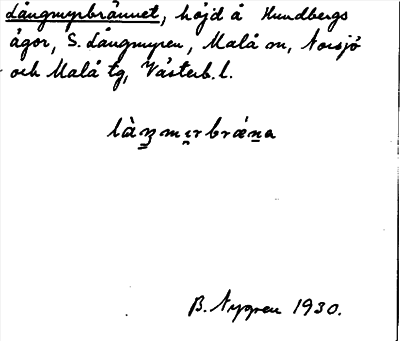 Långmyrbrännet, höjd å Hundbergs
ägor, S. Långmyren, Malå sn, Norsjö
och Malå tg, Västerb. l.
B. Nygren 1930.